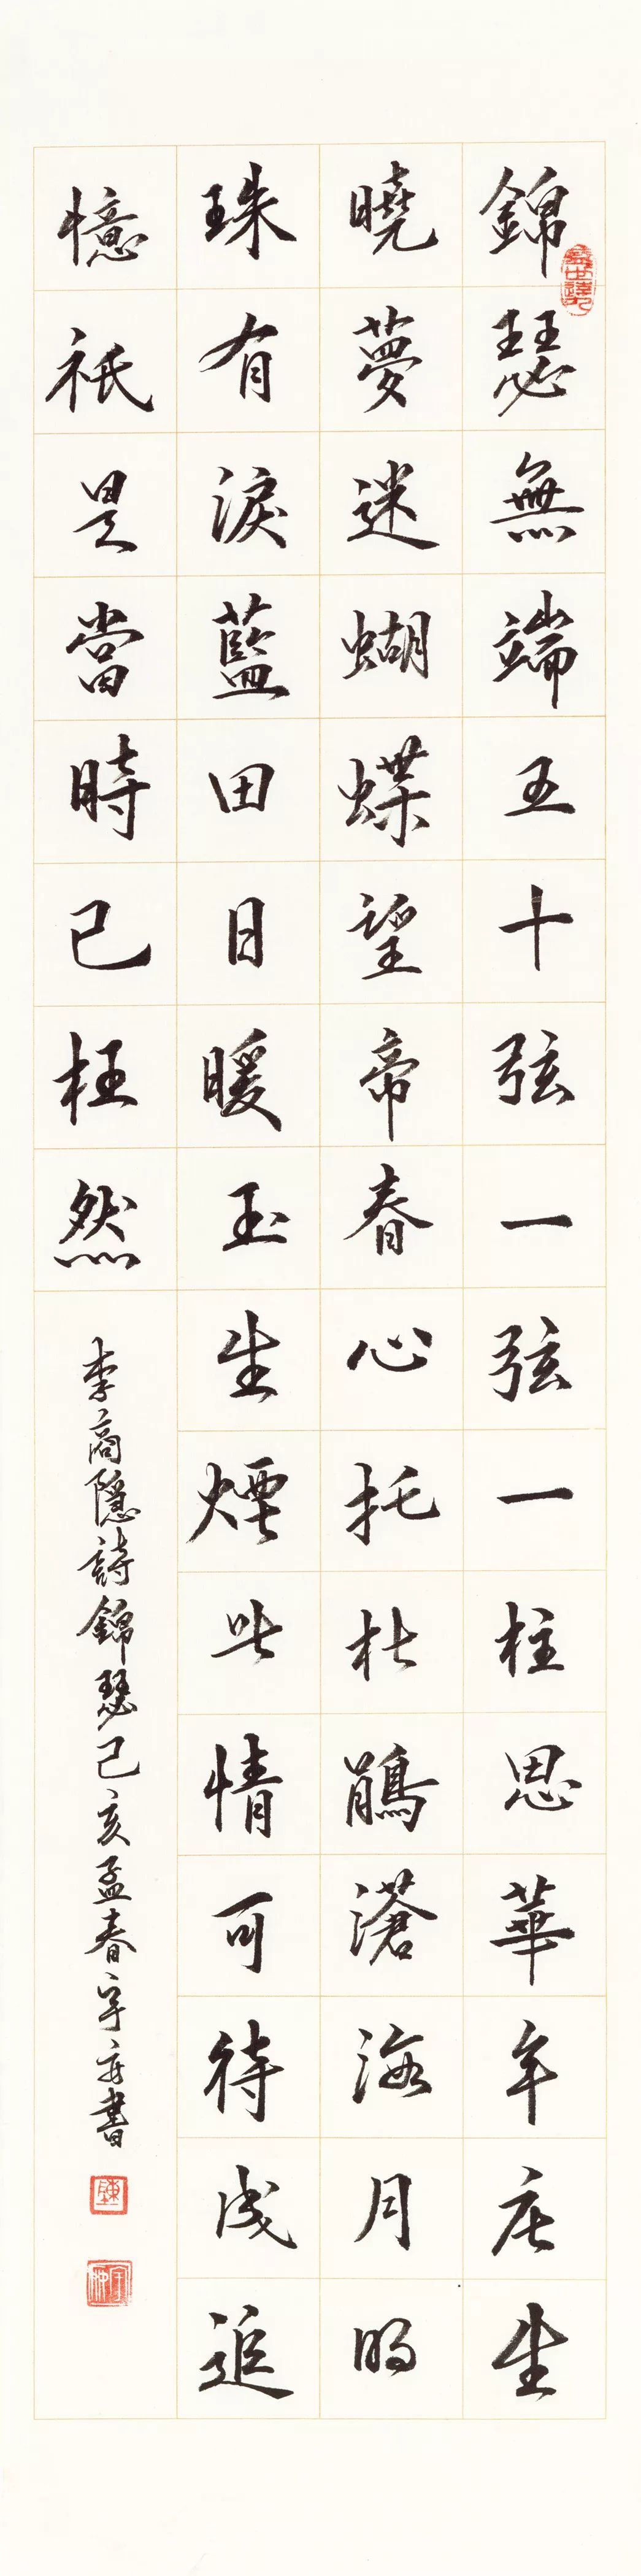 錦瑟無端五十弦一弦一柱思華年庄生
曉夢迷蝴蝶望帝春心托杜鵑滄海月明
珠有淚藍田日暖玉生煙此情可待成追
憶祇是當時已枉然
李商隱詩錦瑟己亥孟春宇書
陳